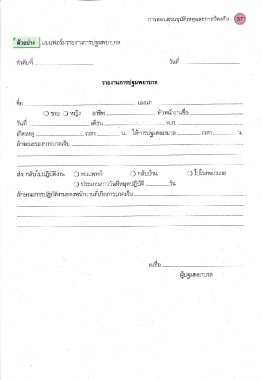 การสอบสวนอุบัติเหตุและการป้องกัน 37
ตัวอย่าง แบบฟอร์มรายงานการปฐมพยาบาล
ลำดับที่ วันที่
รายงานการปฐมพยาบาล
ชื่อ แผนก
ชาย หญิง อาชีพ หัวหน้างานชื่อ
วันที่ เดือน พ.ศ.
เกิดเหตุ เวลา น. ให้การปฐมพยาบาล เวลา น.
ลักษณะของการบาดเจ็บ
ส่ง กลับไปปฏิบัติงาน พบแพทย์ กลับบ้าน ไปโรงพยาบาล
ประมาณการวันที่หยุดปฏิบัติ วัน
ลักษณะการปฏิบัติงานของพนักงานที่เกิดการบาดเจ็บ
ลงชื่อ
ผู้ปฐมพยาบาล